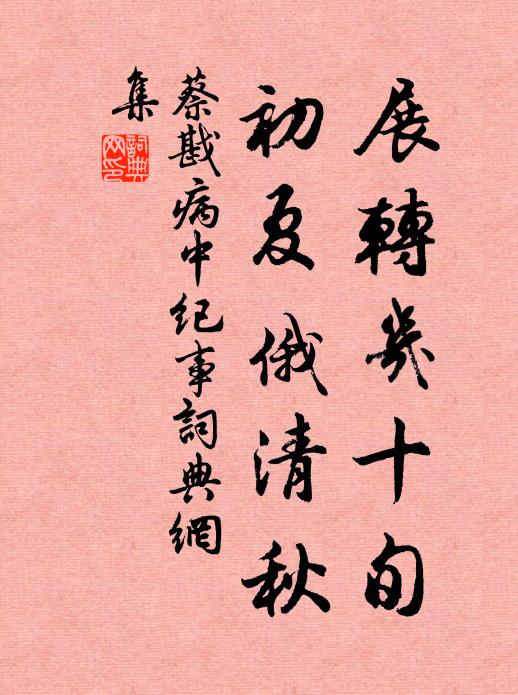 展轉幾十旬
初夏俄清秋
蔡戡病中纪事詞典網
集
詞典
网印